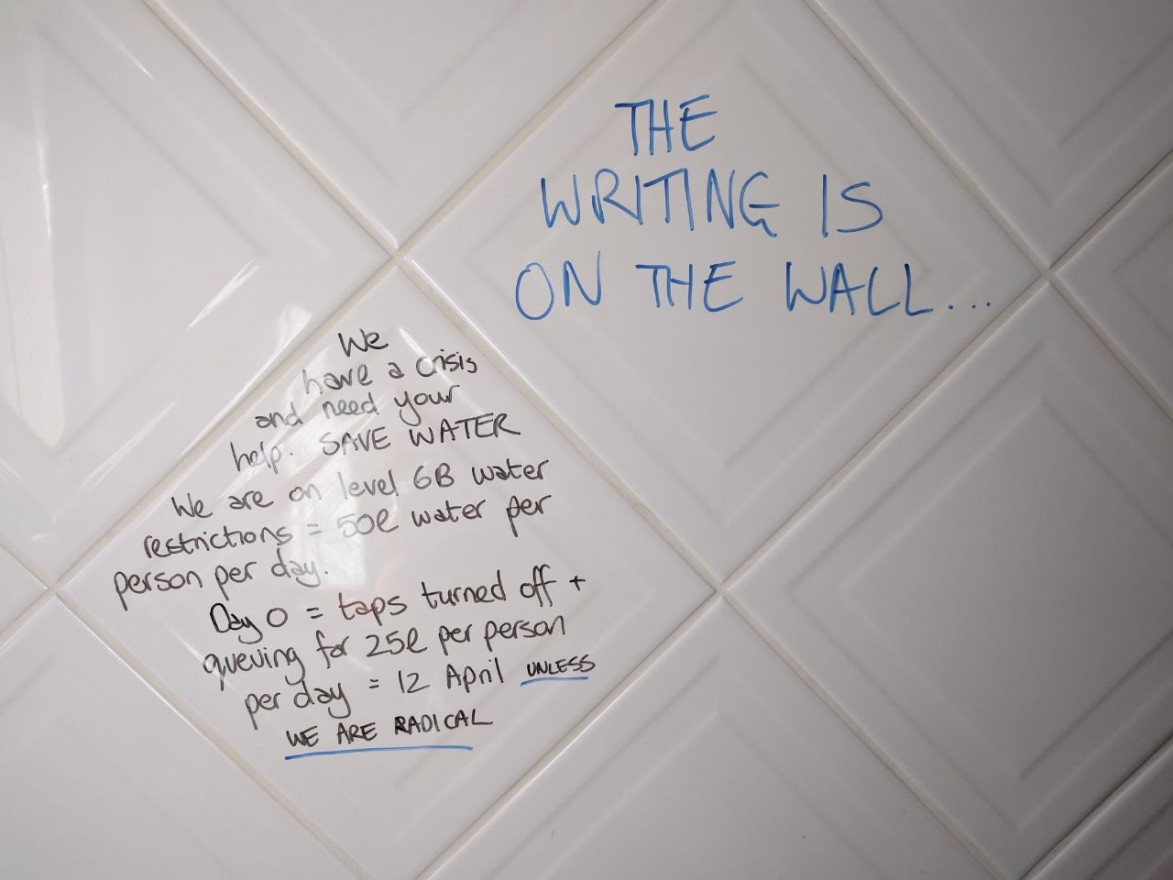 THE
WRITING IS
ON THE WALL...
We
have a crisis
and need your
help. SAVE WATER
We are on level 6B water
restrictions = 50l water per
person per day.
Day 0 = taps turned off +
queuing for 25l per person
per day = 12 April UNLESS
WE ARE RADICAL